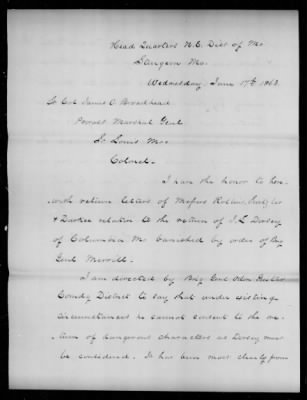 Head Quarters N.E. Dist of Mo
Sturgeon Mo.
Wednesday, June 17th 1863.
Lt Col James O Broadhead
Provost Marshal Genl
St Louis Mo.
Colonel.
I have the honor to here-
with return letters of Messrs Rollins,
& relative to the return of J. L. Dorsey
of Columbia Mo banished by order of Brig
Genl Merrill.
I am directed by Brig Genl Odon Guitar
Comdg District to say that under existing
circumstances he cannot consent to the re-
turn of dangerous characters as Dorsey must
be considered. It has been most clearly proven